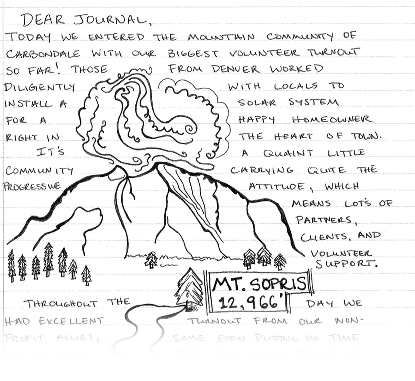 DEAR JOURNAL,
TODAY WE ENTERED THE MOUNTAIN COMMUNITY OF
CARBONDALE WITH OUR BIGGEST VOLUNTEER TURNOUT
SO FAR! THOSE FROM DENVER WORKED
DILIGENTLY WITH LOCALS TO
INSTALL A SOLAR SYSTEM
FOR A HAPPY HOMEOWNER
RIGHT IN THE HEART OF TOWN.
IT'S A QUAINT LITTLE
COMMUNITY CARRYING QUITE THE
PROGRESSIVE ATTITUDE, WHICH
MEANS LOTS OF
PARTNERS,
CLIENTS, AND
VOLUNTEER
SUPPORT.
MT. SOPRIS
12,966'
THROUGHOUT THE DAY WE
HAD EXCELLENT TURNOUT FROM OUR NON-
PROFIT ALLIES, SOME EVEN PUTING IN TIME